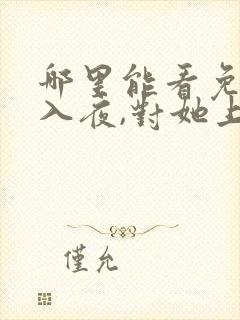 哪里能看免
入夜,對她上
僅允